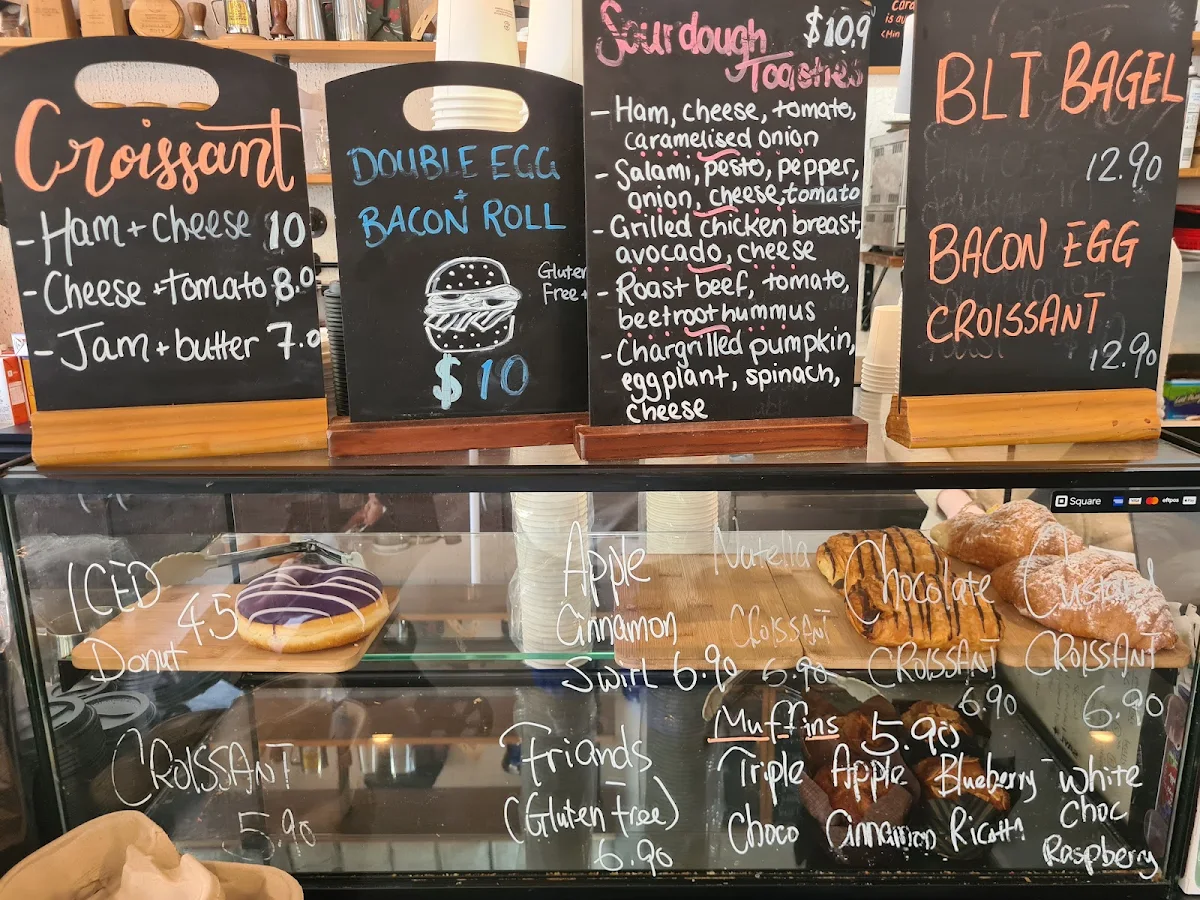 Croissant
- Ham + cheese 10
- Cheese + tomato 8.0
- Jam + butter 7.0
DOUBLE EGG
+
BACON ROLL
Gluten
Free +
$10
Sourdough $10.9
Toasties
- Ham, cheese, tomato,
caramelised onion
- Salami, pesto, pepper,
onion, cheese, tomato
- Grilled chicken breast,
avocado, cheese
- Roast beef, tomato,
beetroot hummus
- Chargrilled pumpkin,
eggplant, spinach,
cheese
BLT BAGEL
12.90
BACON EGG
CROISSANT
12.90
Square
ICED
Donut 4.5
Apple
Cinnamon
Swirl 6.90
Nutella
CROISSANT
6.90
Chocolate
CROISSANT
6.90
Custard
CROISSANT
6.90
CROISSANT
5.90
Friands
(Gluten free)
6.90
Muffins 5.90
Triple
Choco
Apple
Cinnamon
Blueberry
Ricotta
- white
choc
Raspberry